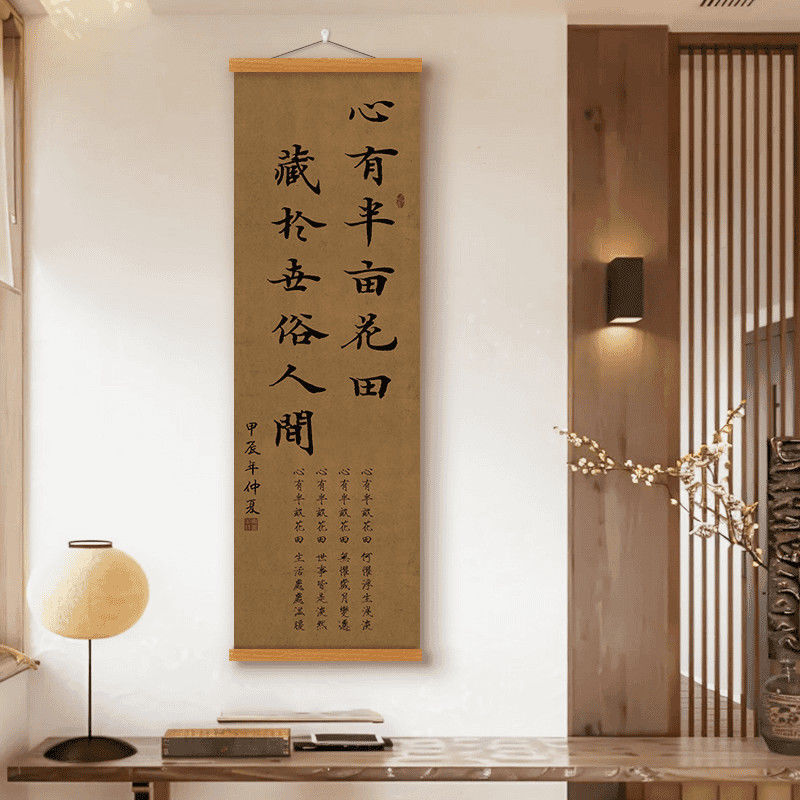 心有半亩花田
藏於世俗人間
心有半畝花田 何懼浮生漫漫
心有半畝花田 無懼歲月變遷
心有半畝花田 世事皆是淡然
心有半畝花田 生活處處溫暖
甲辰年仲夏